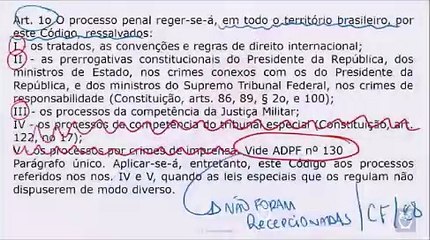 Art. 1o O processo penal reger-se-á, em todo o território brasileiro, por
este Código, ressalvados:
I - os tratados, as convenções e regras de direito internacional;
II - as prerrogativas constitucionais do Presidente da República, dos
ministros de Estado, nos crimes conexos com os do Presidente da
República, e dos ministros do Supremo Tribunal Federal, nos crimes de
responsabilidade (Constituição, arts. 86, 89, § 2o, e 100);
III - os processos da competência da Justiça Militar;
IV - os processos da competência do tribunal especial (Constituição, art.
122, no 17);
V - os processos por crimes de imprensa. Vide ADPF nº 130
Parágrafo único. Aplicar-se-á, entretanto, este Código aos processos
referidos nos nos. IV e V, quando as leis especiais que os regulam não
dispuserem de modo diverso.
NÃO FORAM
RECEPCIONADAS / CF / 88